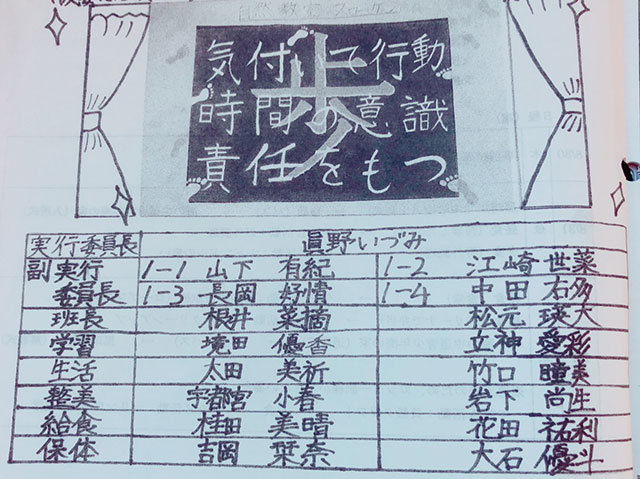 自然教室スローガン
気付いて行動
時間の意識
責任をもつ
歩
実行委員長 眞野いづみ
副実行委員長 1-1 山下 有紀 1-2 江崎 世菜
1-3 長岡 好情 1-4 中田 右多
班長 根井 菜摘 松元 瑛大
学習 境田 優香 立神 愛彩
生活 太田 美祈 竹口 瞳爽
整美 宇都宮 小春 岩下 尚生
給食 桂田 美晴 花田 祐利
保体 吉岡 栞奈 大石 優斗